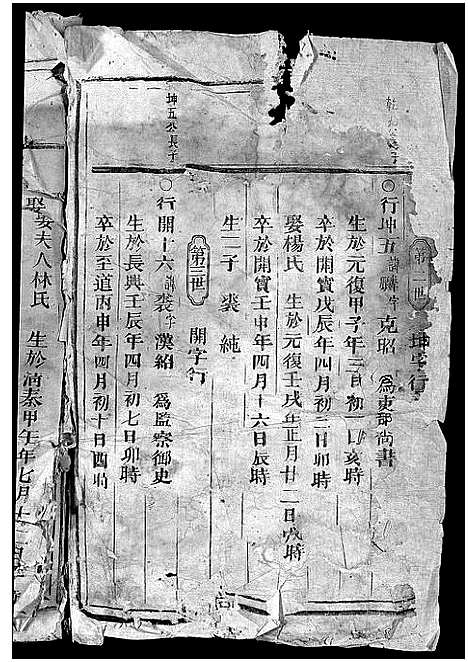 第二世 坤字行
○行坤五諱麟字克昭 為吏部尚書
生於元復甲子年三月初一日亥時
卒於開寶戊辰年四月初三日卯時
娶楊氏 生於元復壬戌年正月廿二日戌時
卒於開寶壬申年四月十六日辰時
生二子 裘 純
第三世 開字行
坤五公長子
○行開十六諱裘字漢紹 為監察御史
生於長興壬辰年四月初七日卯時
卒於至道丙申年四月初十日酉時
娶安夫人林氏 生於清泰甲午年七月十